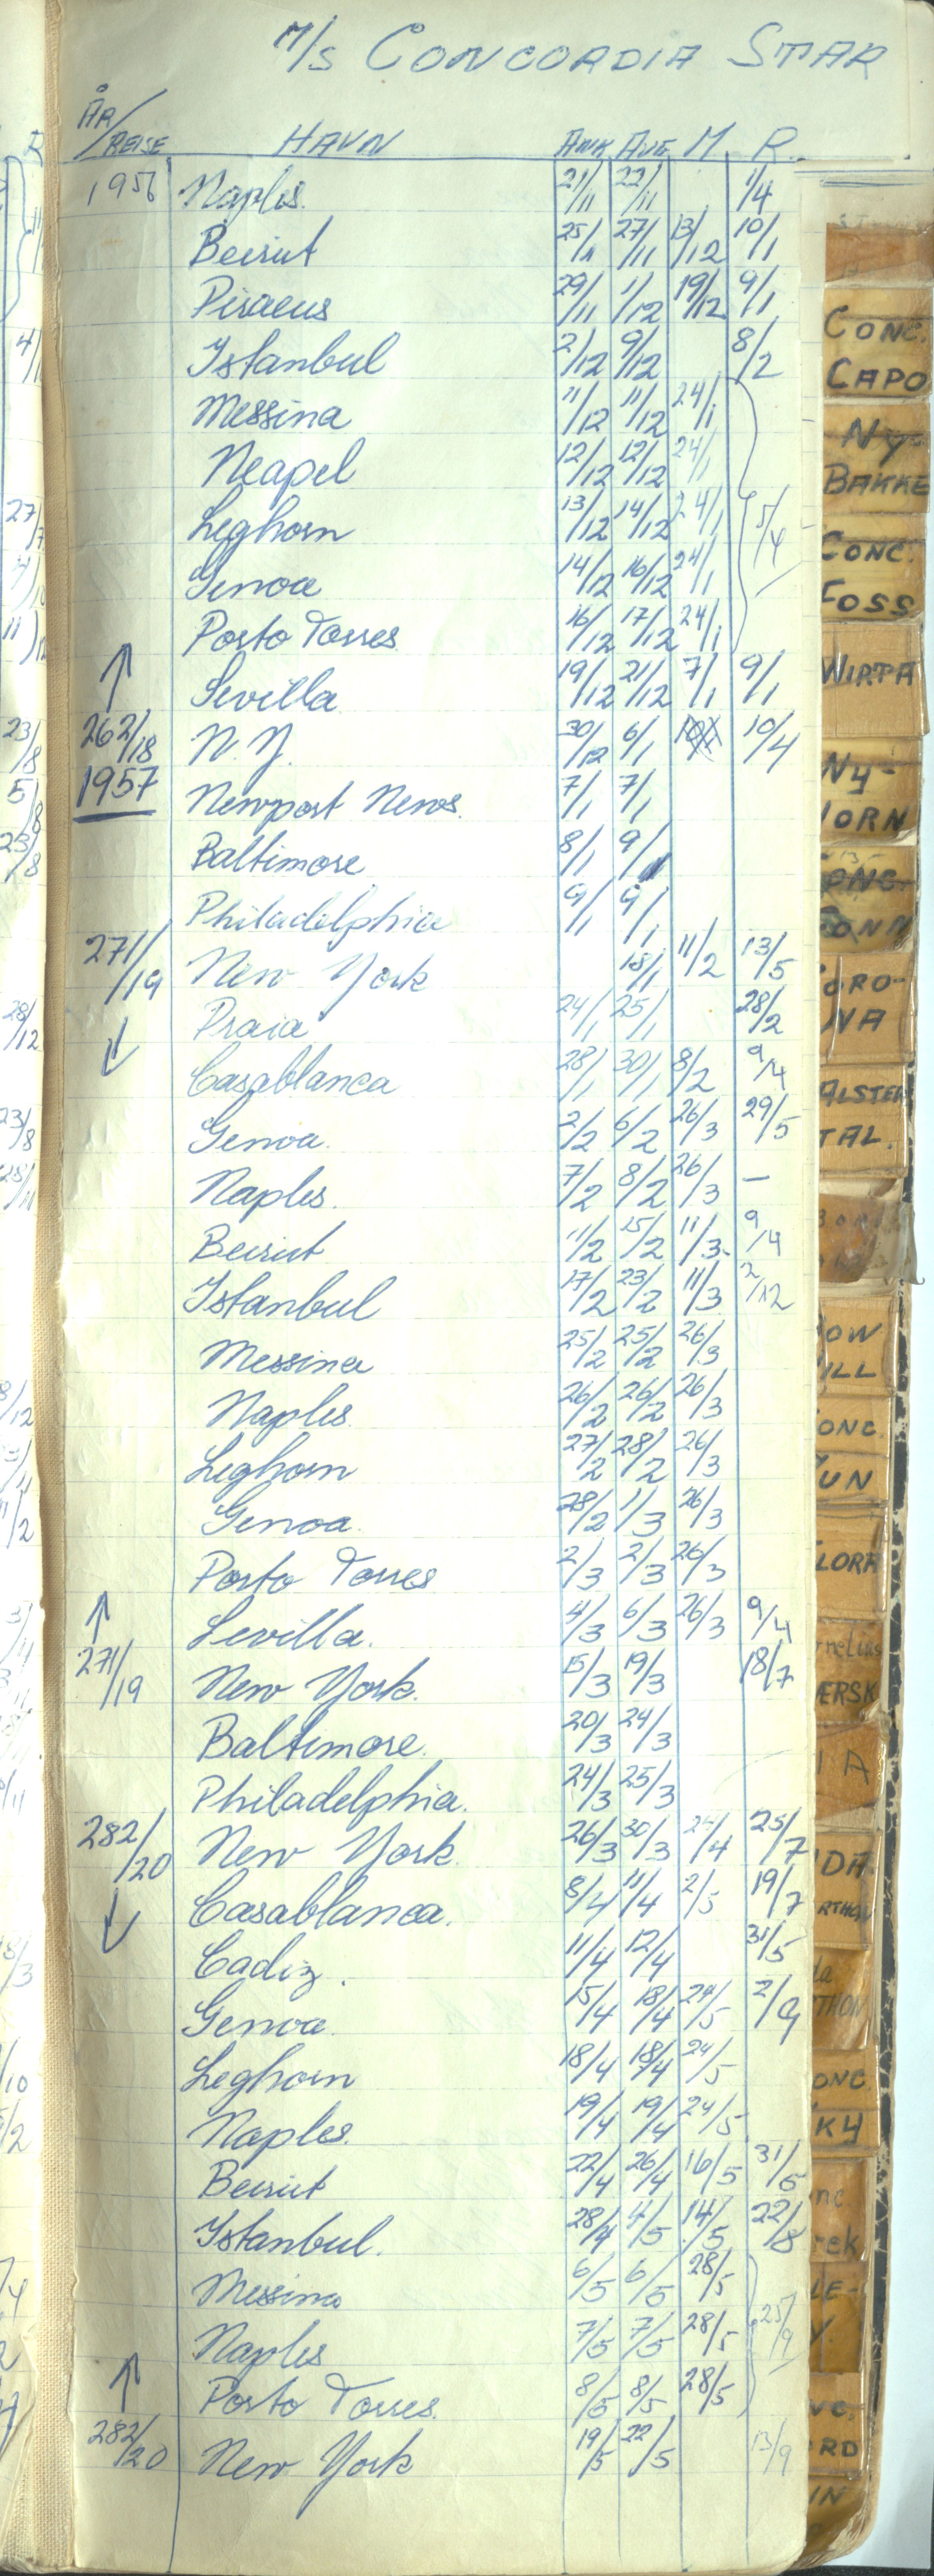 M/S CONCORDIA STAR
ÅR/REISE HAVN ANK AVG M. R.
1956 Naples 21/11 22/11 1/4
Beirut 25/11 27/11 13/12 10/1
Piraeus 29/11 1/12 19/12 9/1
Istanbul 2/12 9/12 8/2
Messina 11/12 11/12 24/1
Neapel 12/12 12/12 24/1
Leghorn 13/12 14/12 24/1 5/4
Genoa 14/12 16/12 24/1
Porto Torres 16/12 17/12 24/1
↑ Sevilla 19/12 21/12 7/1 9/1
262/18 N.Y. 30/12 6/1 10/4
1957 Newport News. 7/1 7/1
Baltimore 8/1 9/
Philadelphia 9/1 9/1
271/19 New York 18/1 11/2 13/5
↓ Praia 24/1 25/1 28/2
Casablanca 28/1 30/1 8/2 9/4
Genoa. 2/2 6/2 26/3 29/5
Naples. 7/2 8/2 26/3 —
Beirut 11/2 15/2 11/3 9/4
Istanbul 17/2 23/2 11/3 2/12
Messina 25/2 25/2 26/3
Naples 26/2 26/2 26/3
Leghorn 27/2 28/2 26/3
Genoa. 28/2 1/3 26/3
Porto Torres 2/3 2/3 26/3
↑ Sevilla. 4/3 6/3 26/3 9/4
271/19 New York. 15/3 19/3 18/7
Baltimore. 20/3 24/3
Philadelphia. 24/3 25/3
282/20 New York 26/3 30/3 24/4 25/7
↓ Casablanca. 8/4 11/4 2/5 19/7
Cadiz. 11/4 12/4 31/5
Genoa. 15/4 18/4 24/5 2/9
Leghorn 18/4 18/4 24/5
Naples. 19/4 19/4 24/5
Beirut 22/4 26/4 16/5 31/5
Istanbul. 28/4 4/5 14/5 22/8
Messina 6/5 6/5 28/5
Naples 7/5 7/5 28/5 25/9
↑ Porto Torres 8/5 8/5 28/5
282/20 New York 19/5 22/5 13/9
CONC.
CAPO
NY-
BAKKE
CONC.
FOSS
WIRTA
NY-
HORN
CORO-
NA
ALSTER
TAL.